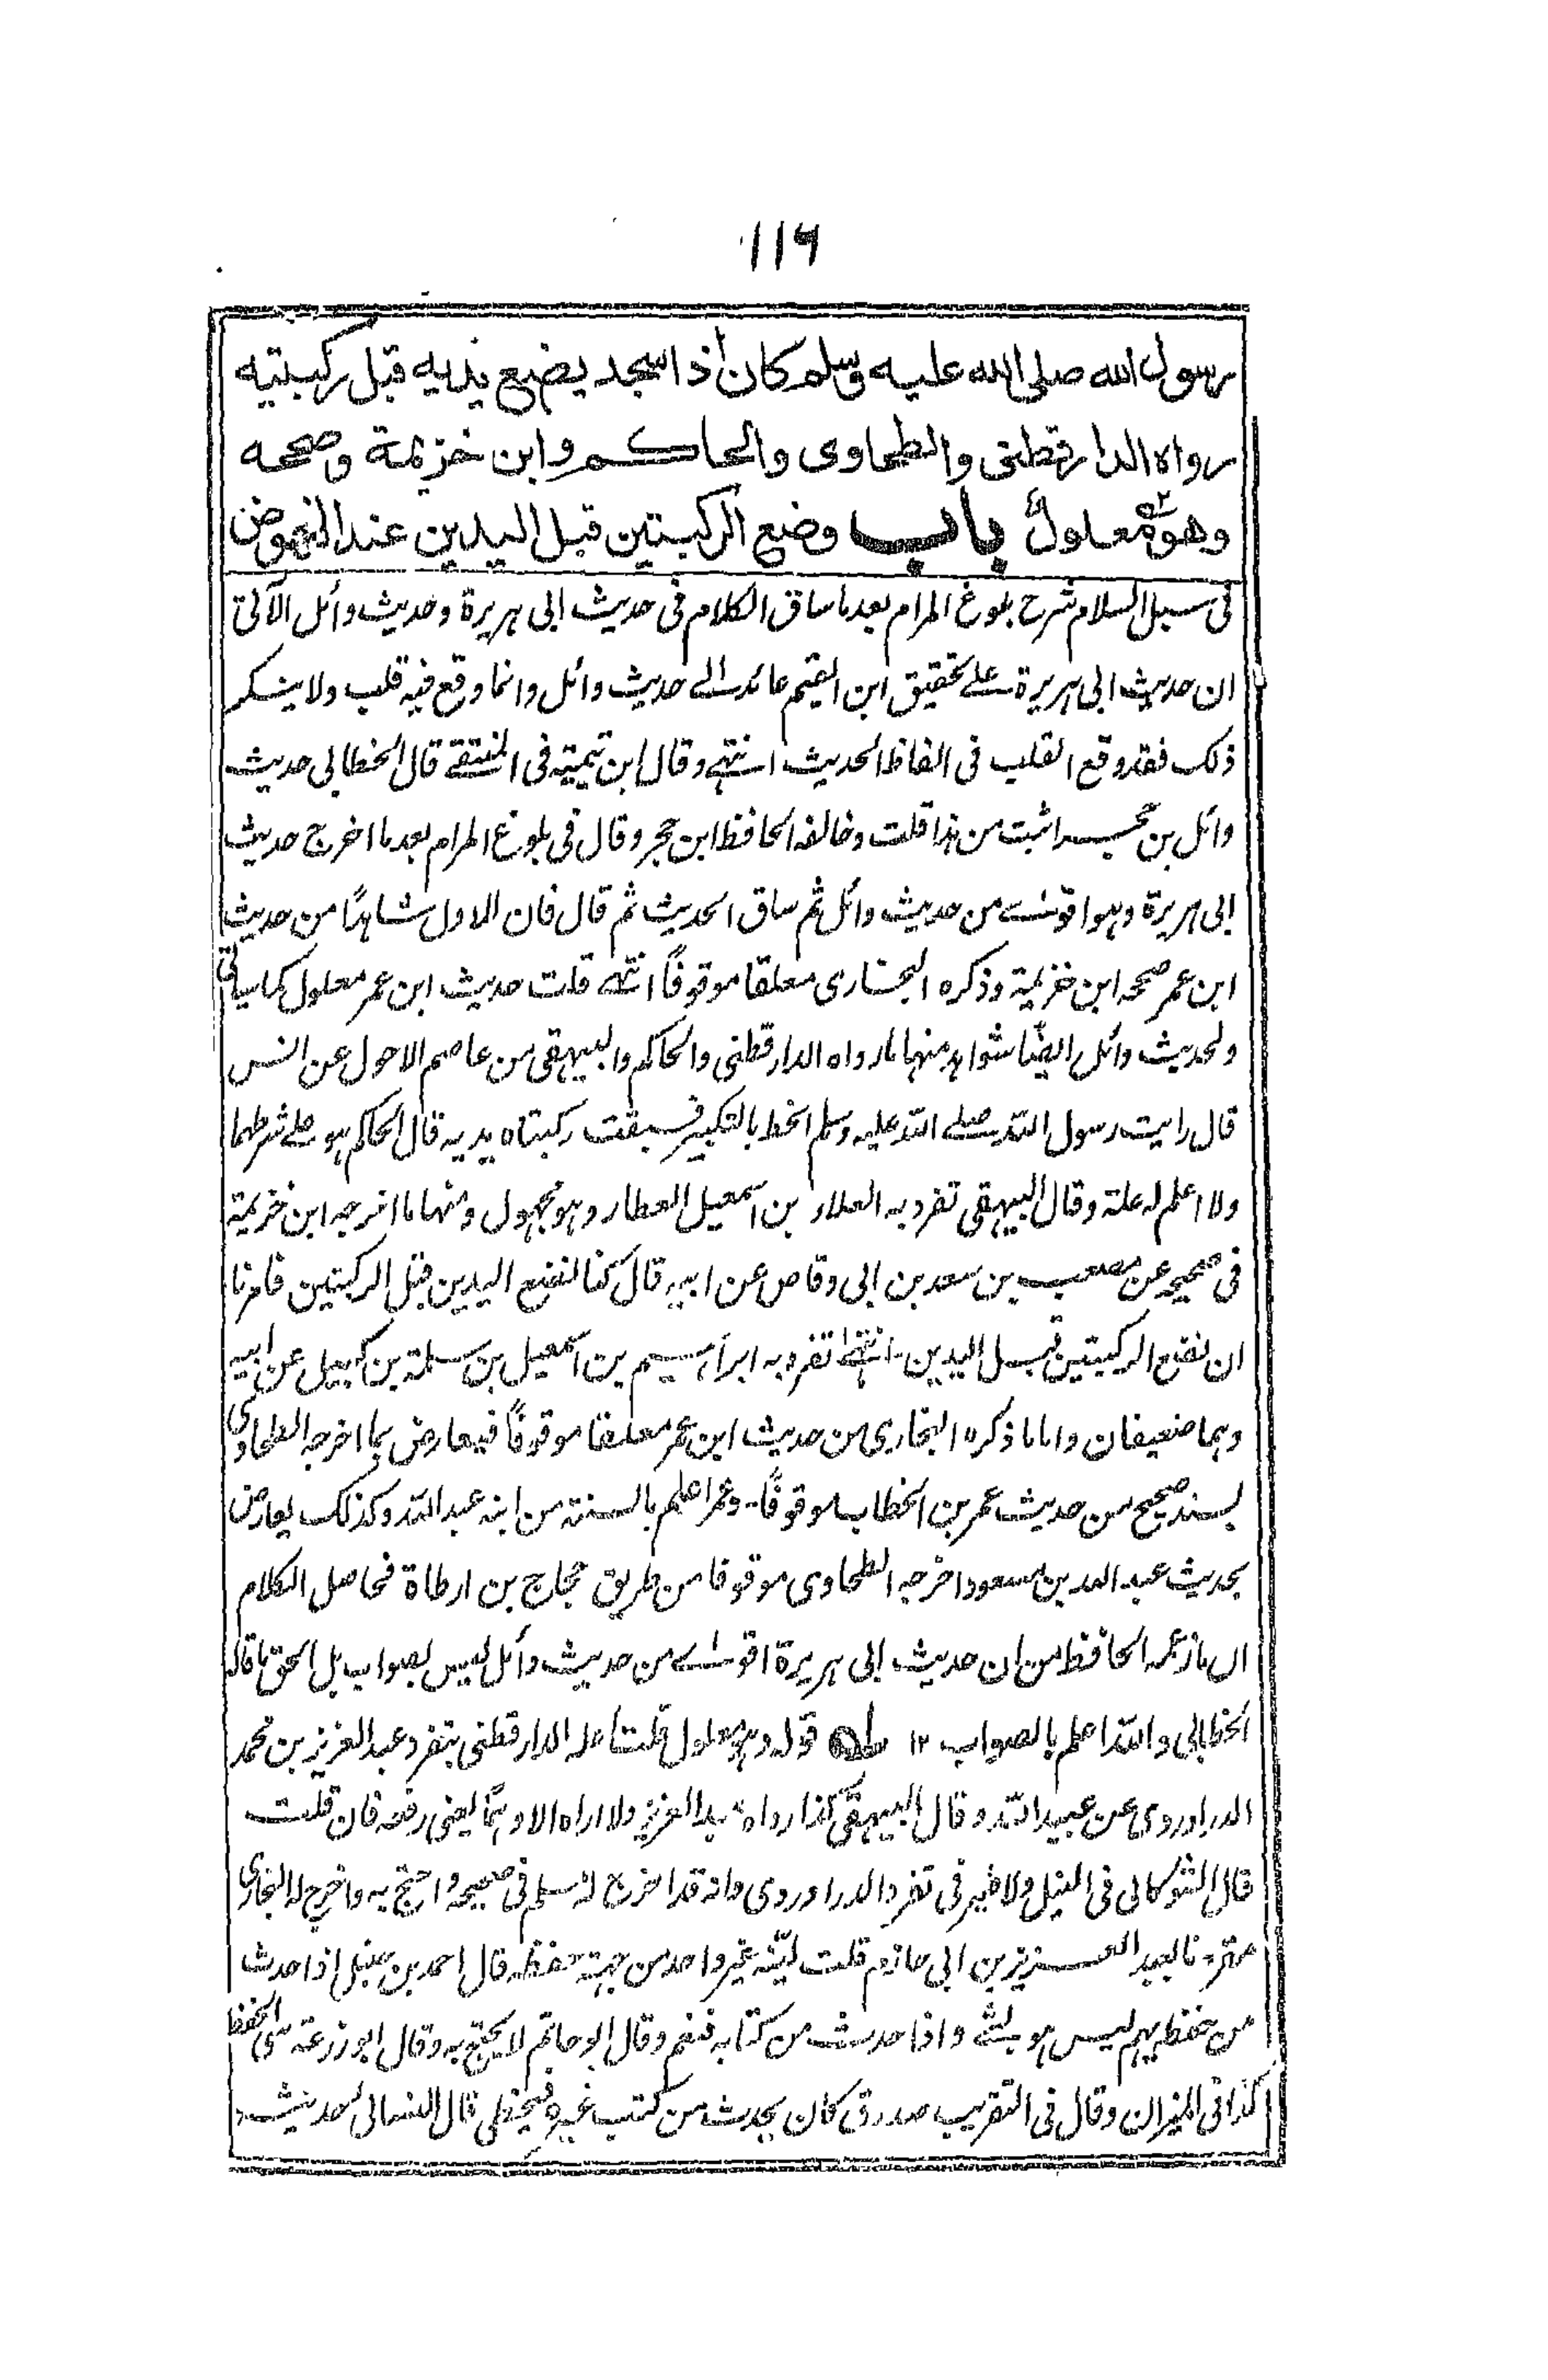 ١١٦
رسول الله صلى الله عليه وسلم كان اذا سجد يضع يديه قبل ركبتيه
رواه الدارقطني والطحاوي والحاكم وابن خزيمة وصححه
وهو معلول باب وضع الركبتين قبل اليدين عند النهوض
في سبل السلام شرح بلوغ المرام بعد ما ساق الكلام في حديث ابي هريرة وحديث وائل الآتي
ان حديث ابي هريرة على تحقيق ابن القيم عائد الى حديث وائل وانما وقع فيه قلب ولا ينكر
ذلك فقد وقع القلب في الفاظ الحديث انتهى وقال ابن تيمية في المنتقى قال الخطابي حديث
وائل بن حجر اثبت من هذا قلت وخالفه الحافظ ابن حجر وقال في بلوغ المرام بعد ما اخرج حديث
ابي هريرة وهو اقوى من حديث وائل ثم ساق الحديث ثم قال فان للاول شاهدًا من حديث
ابن عمر صححه ابن خزيمة وذكره البخاري معلقا موقوفًا انتهى قلت حديث ابن عمر معلول كما سياتي
ولحديث وائل ايضًا شواهد منها ما رواه الدارقطني والحاكم والبيهقي من عاصم الاحول عن انس
قال رايت رسول الله صلى الله عليه وسلم انحط بالتكبير فسبقت ركبتاه يديه قال الحاكم هو على شرطهما
ولا اعلم له علة وقال البيهقي تفرد به العلاء بن اسمعيل العطار وهو مجهول ومنها ما اخرجه ابن خزيمة
في صحيحه عن مصعب بن سعد بن ابي وقاص عن ابيه قال كنا نضع اليدين قبل الركبتين فامرنا
ان نضع الركبتين قبل اليدين انتهى تفرد به ابراهيم بن اسمعيل بن سلمة بن كهيل عن ابيه
وهما ضعيفان واما ما ذكره البخاري من حديث ابن عمر معلقا موقوفًا فيعارض بما اخرجه الطحاوي
بسند صحيح من حديث عمر بن الخطاب موقوفًا وعمر اعلم بالسنة من ابنه عبد الله وكذلك يعارض
بحديث عبد الله بن مسعود اخرجه الطحاوي موقوفا من طريق حجاج بن ارطاة فحاصل الكلام
ان ما زعمه الحافظ من ان حديث ابي هريرة اقوى من حديث وائل ليس بصواب بل الحق ما قاله
الخطابي والله اعلم بالصواب ١٢ قوله وهو معلول قلت اعله الدارقطني بتفرد عبد العزيز بن محمد
الدراوردي عن عبيد الله وقال البيهقي كذا رواه عبد العزيز ولا اراه الا وهمًا يعني رفعه فان قلت
قال الشوكاني في النيل ولا ضير في تفرد الدراوردي وانه قد اخرج له مسلم في صحيحه واحتج به واخرج له البخاري
مقرونا بعبد العزيز بن ابي حازم قلت ليّنه غير واحد من جهة حفظه قال احمد بن حنبل اذا حدث
من حفظه يهم ليس هو بشيء واذا حدث من كتابه فنعم وقال ابو حاتم لا يحتج به وقال ابو زرعة سيئ الحفظ
كذا في الميزان وقال في التقريب صدوق كان يحدث من كتب غيره فيخطئ قال النسائي حديثه